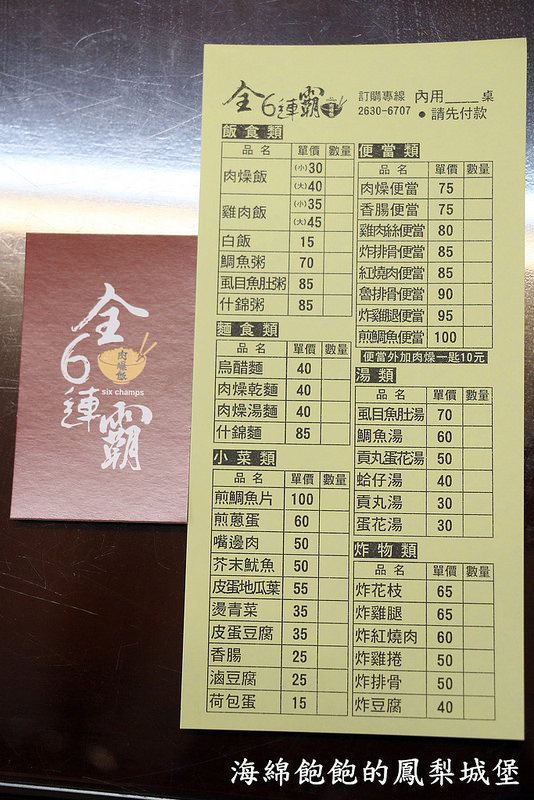 全6連霸
訂購專線 內用____桌
2630-6707 ●請先付款
飯食類
品名 單價 數量
肉燥飯 (小)30
(大)40
雞肉飯 (小)35
(大)45
白飯 15
鯛魚粥 70
虱目魚肚粥 85
什錦粥 85
麵食類
品名 單價 數量
烏醋麵 40
肉燥乾麵 40
肉燥湯麵 40
什錦麵 85
小菜類
品名 單價 數量
煎鯛魚片 100
煎蔥蛋 60
嘴邊肉 50
芥末魷魚 50
皮蛋地瓜葉 55
燙青菜 35
皮蛋豆腐 35
香腸 25
滷豆腐 25
荷包蛋 15
便當類
品名 單價 數量
肉燥便當 75
香腸便當 75
雞肉絲便當 80
炸排骨便當 85
紅燒肉便當 85
魯排骨便當 90
炸雞腿便當 95
煎鯛魚便當 100
便當外加肉燥一匙10元
湯類
品名 單價 數量
虱目魚肚湯 70
鯛魚湯 60
貢丸蛋花湯 50
蛤仔湯 40
貢丸湯 30
蛋花湯 30
炸物類
品名 單價 數量
炸花枝 65
炸雞腿 65
炸紅燒肉 60
炸雞捲 50
炸排骨 50
炸豆腐 40
全6連霸
肉燥飯
six champs
海綿飽飽的鳳梨城堡